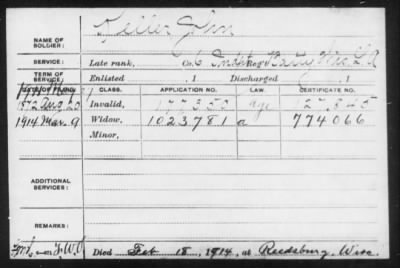 NAME OF SOLDIER: Keller John
SERVICE: Late rank, Co. 6 Batty Wis L A
TERM OF SERVICE: Enlisted , 1 Discharged , 1
DATE OF FILING. CLASS. APPLICATION NO. LAW. CERTIFICATE NO.
1872 Aug 20 Invalid, 177353 127,845
1914 Mar. 9 Widow, 1023781 a 774066
Minor,
ADDITIONAL SERVICES:
REMARKS:
Died Feb 18, 1914, at Reedsburg, Wisc.